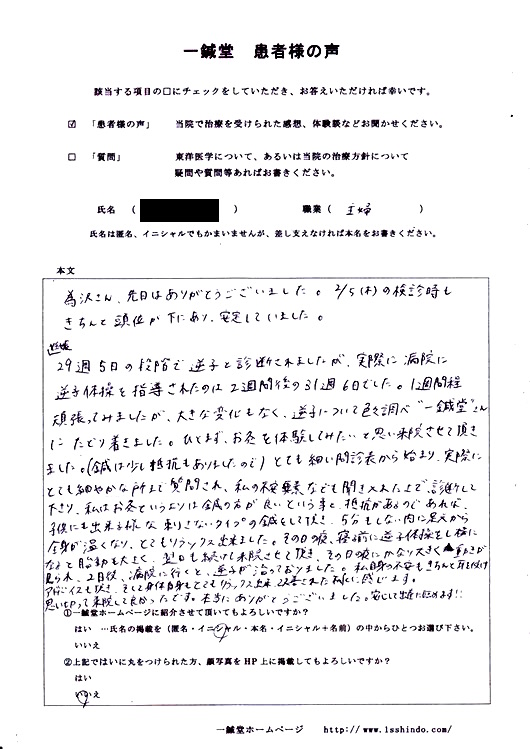 一鍼堂　患者様の声
該当する項目の□にチェックをしていただき、お答えいただければ幸いです。
☑　「患者様の声」　当院で治療を受けられた感想、体験談などお聞かせください。
□　「質問」　東洋医学について、あるいは当院の治療方針について
疑問や質問等あればお書きください。
氏名（　　　）　職業（ 主婦 ）
氏名は匿名、イニシャルでもかまいませんが、差し支えなければ本名をお書きください。
本文
為沢さん、先日はありがとうございました。2/5(木)の検診時も
きちんと頭位が下にあり、安定していました。
妊娠
29週5日の段階で逆子と診断されましたが、実際に病院に
逆子体操を指導されたのは2週間後の31週6日でした。1週間程
頑張ってみましたが、大きな変化もなく、逆子について色々調べ"一鍼堂"さん
にたどり着きました。ひとまず、お灸を体験してみたいと思い来院させて頂き
ました。(鍼は少し抵抗もありましたので)とても細い問診表から始まり、実際に
とても細やかな所まで質問され、私の不安要素なども聞き入れた上で診断して
下さり、私はお灸というよりは鍼の方が良いという事と、抵抗があるのであれば、
子供にも出来る様な刺さないタイプの鍼をして頂き、5分もしない内に足元から
全身が温くなり、とてもリラックス出来ました。その日の夜、寝前に逆子体操をし横に
なると胎動も大きく、翌日も続けて来院させて頂き、その日の夜にかなり大きく動きが
見られ、2日後、病院に行くと、逆子が治っておりました。私自身の不安もきちんと受け付け
アドバイスも頂き、そして身体自身もとてもリラックス出来、改善された様に感じます。
思い切って来院して良かったです。本当にありがとうございました。安心して出産に臨めます!!
①一鍼堂ホームページに紹介させて頂いてもよろしいですか？
はい　…氏名の掲載を（匿名・イニシャル・本名・イニシャル＋名前）の中からひとつお選び下さい。
いいえ
②上記ではいに丸をつけられた方、顔写真をHP上に掲載してもよろしいですか？
はい
いいえ
一鍼堂ホームページ　http://www.1sshindo.com/